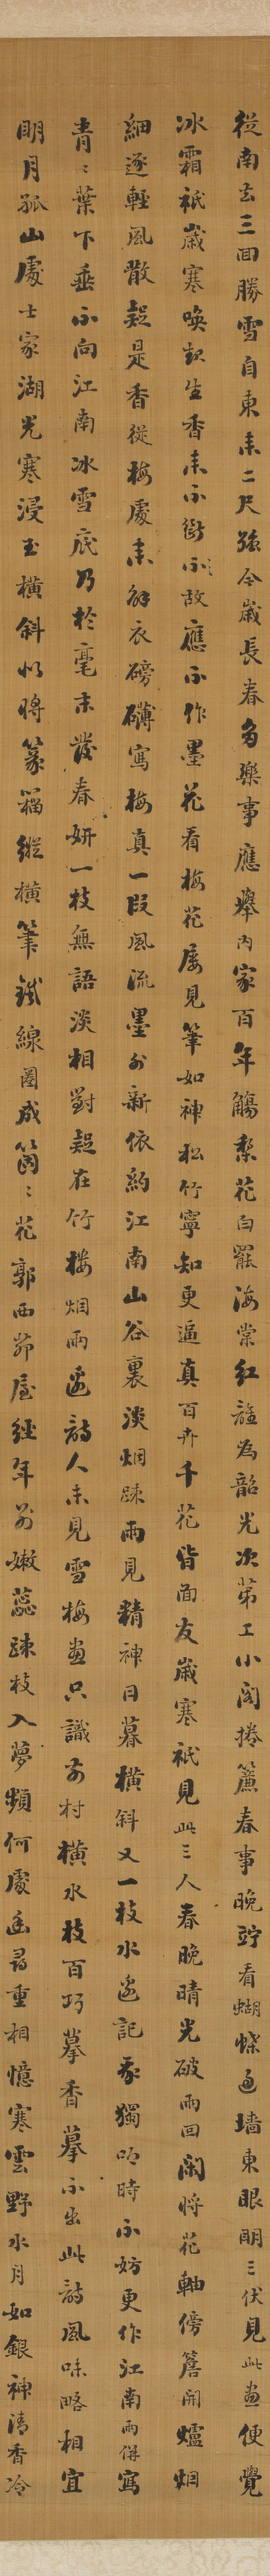 從南去三回勝雪自東來二尺強今歲長春多樂事應舉內家百年觴梨花白罷海棠紅誰為韶光次第工小閣捲簾春事晚竚看蝴蝶過墻東眼明三伏見此畫便覺
冰霜祇歲寒喚起生香來不斷不故應不作墨花看梅花屢見筆如神松竹寧知更逼真百卉千花皆面友歲寒祇見此三人春晚晴光破雨回閑將花軸傍簷開爐烟
細逐輕風散疑是香從梅處來解衣磅礴寫梅真一段風流墨外新依約江南山谷裏淡烟疎雨見精神日暮橫斜又一枝水邊記我獨吟時不妨更作江南雨併寫
青ミ葉下垂不向江南冰雪底乃於毫末發春妍一枝無語淡相對疑在竹樓烟雨邊詩人未見雪梅畫只識前村橫水枝百巧摹香摹不出此詩風味略相宜
明月孤山處士家湖光寒浸玉橫斜似將篆籀縱橫筆鐵線圈成箇ミ花郭西茆屋經年別嫩蕊疎枝入夢頻何處幽尋重相憶寒雲野水月如銀神清香冷